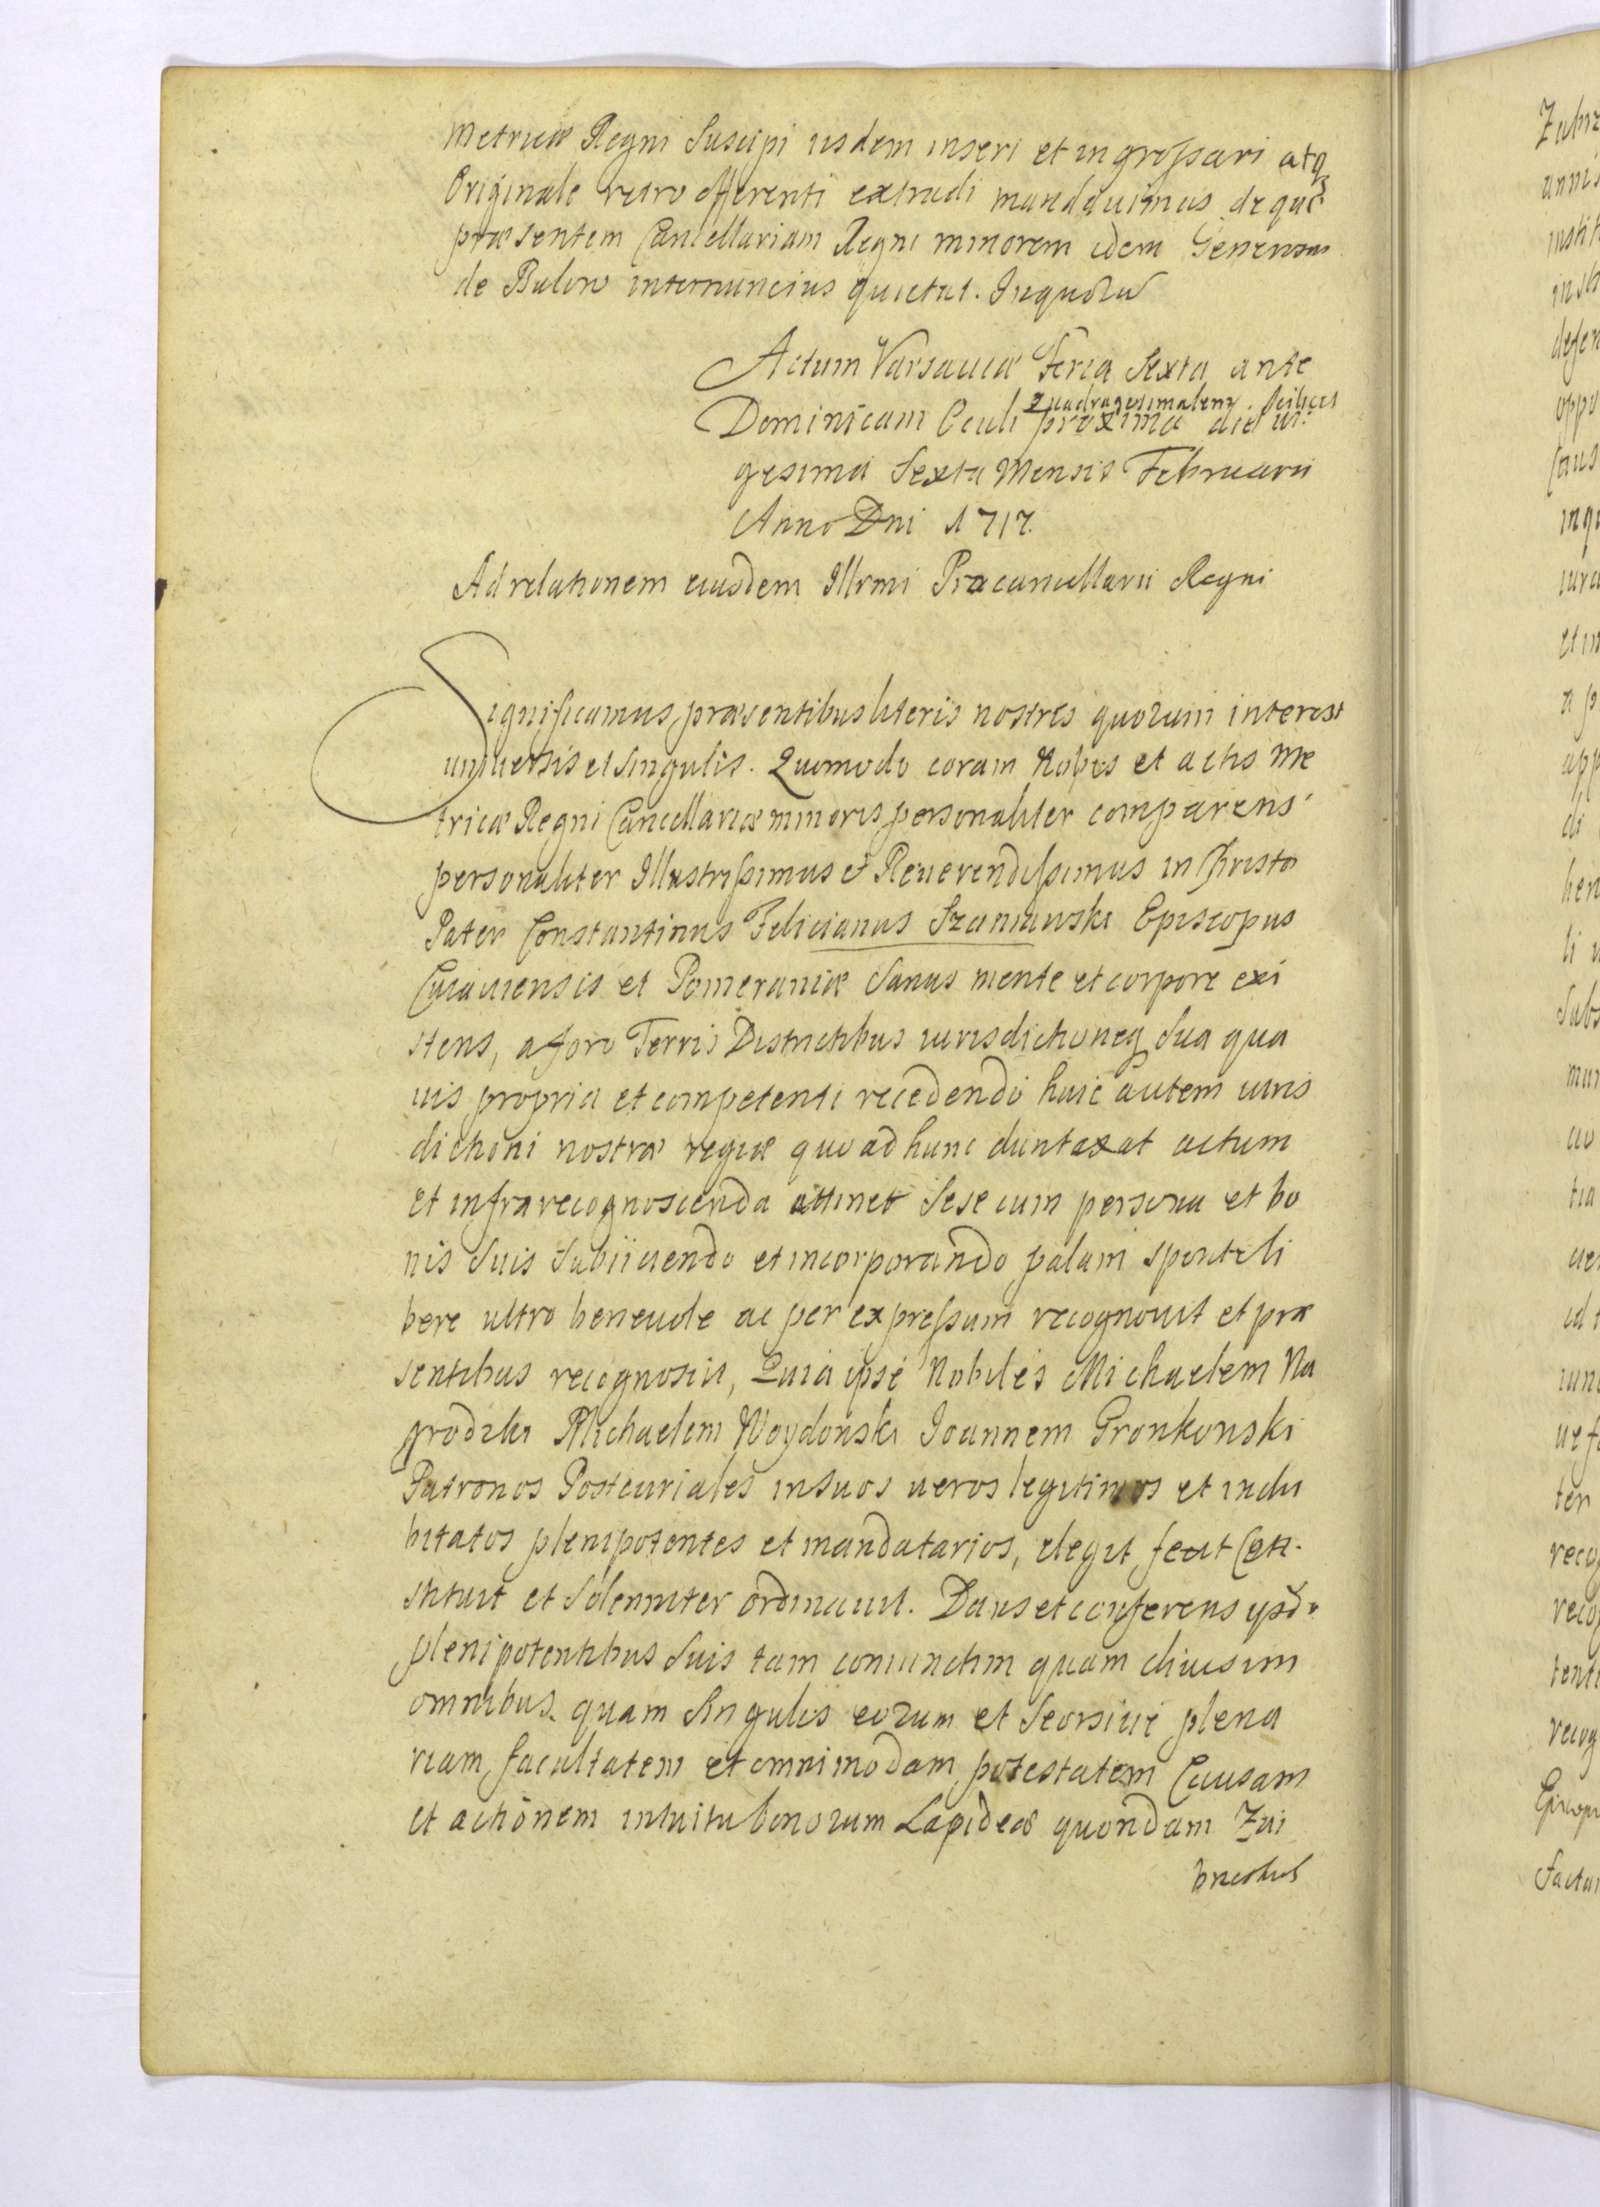 Metricæ Regni Suscipi iisdem inseri et ingrossari atq
Originale retro offerenti extradi mandauimus de quo
præsentem Cancellariam Regni minorem idem Generosus
de Bulow internuncius quietat. In quorū
Actum Varsaviæ Feria Sexta ante
Dominicam Oculi quadragesimalem proxima scilicet die ui:
gesima Sexta Mensis Februarii
Anno Dni 1717.
Ad relationem eiusdem Illrmi Procancellarii Regni
Significamus præsentibus literis nostris quorum interest
universis et singulis. Quomodo coram Nobis et actis Me
tricæ Regni Cancellariæ minoris personaliter comparens
personaliter Illustrissimus et Reuerendissimus in Christo
Pater Constantinus Felicianus Szaniawski Episcopus
Cuiauiensis et Pomeraniæ Sanus mente et corpore exi
stens, a foro Terris Districtibus iurisdictioneq Sua qua
uis propria et competenti recedendo huic autem iuris
dictioni nostræ regiæ quo ad hunc duntaxat actum
et infrarecognoscenda attinet Sese cum persona et bo
nis Suis Subiiciendo et incorporando palam sponte li
bere ultro beneuole ac per expressum recognouit et præ
sentibus recognoscit, Quia ipse Nobiles Michaelem Na
grodzki Michaelem Woydonski Joannem Gronkonski
Patronos Postcuriales in Suos ueros legitimos et indu
bitatos plenipotentes et mandatarios, elegit fecit Con-
stituit et Solenniter ordinauit. Dans et conferens ysd.
plenipotentibus Suis tam coniunctim quam diuisim
omnibus quam Singulis eorum et Seorsiui plena
riam facultatem et omnimodam potestatem Causam
et actionem intuitu bonorum Lapideæ quondam Zui